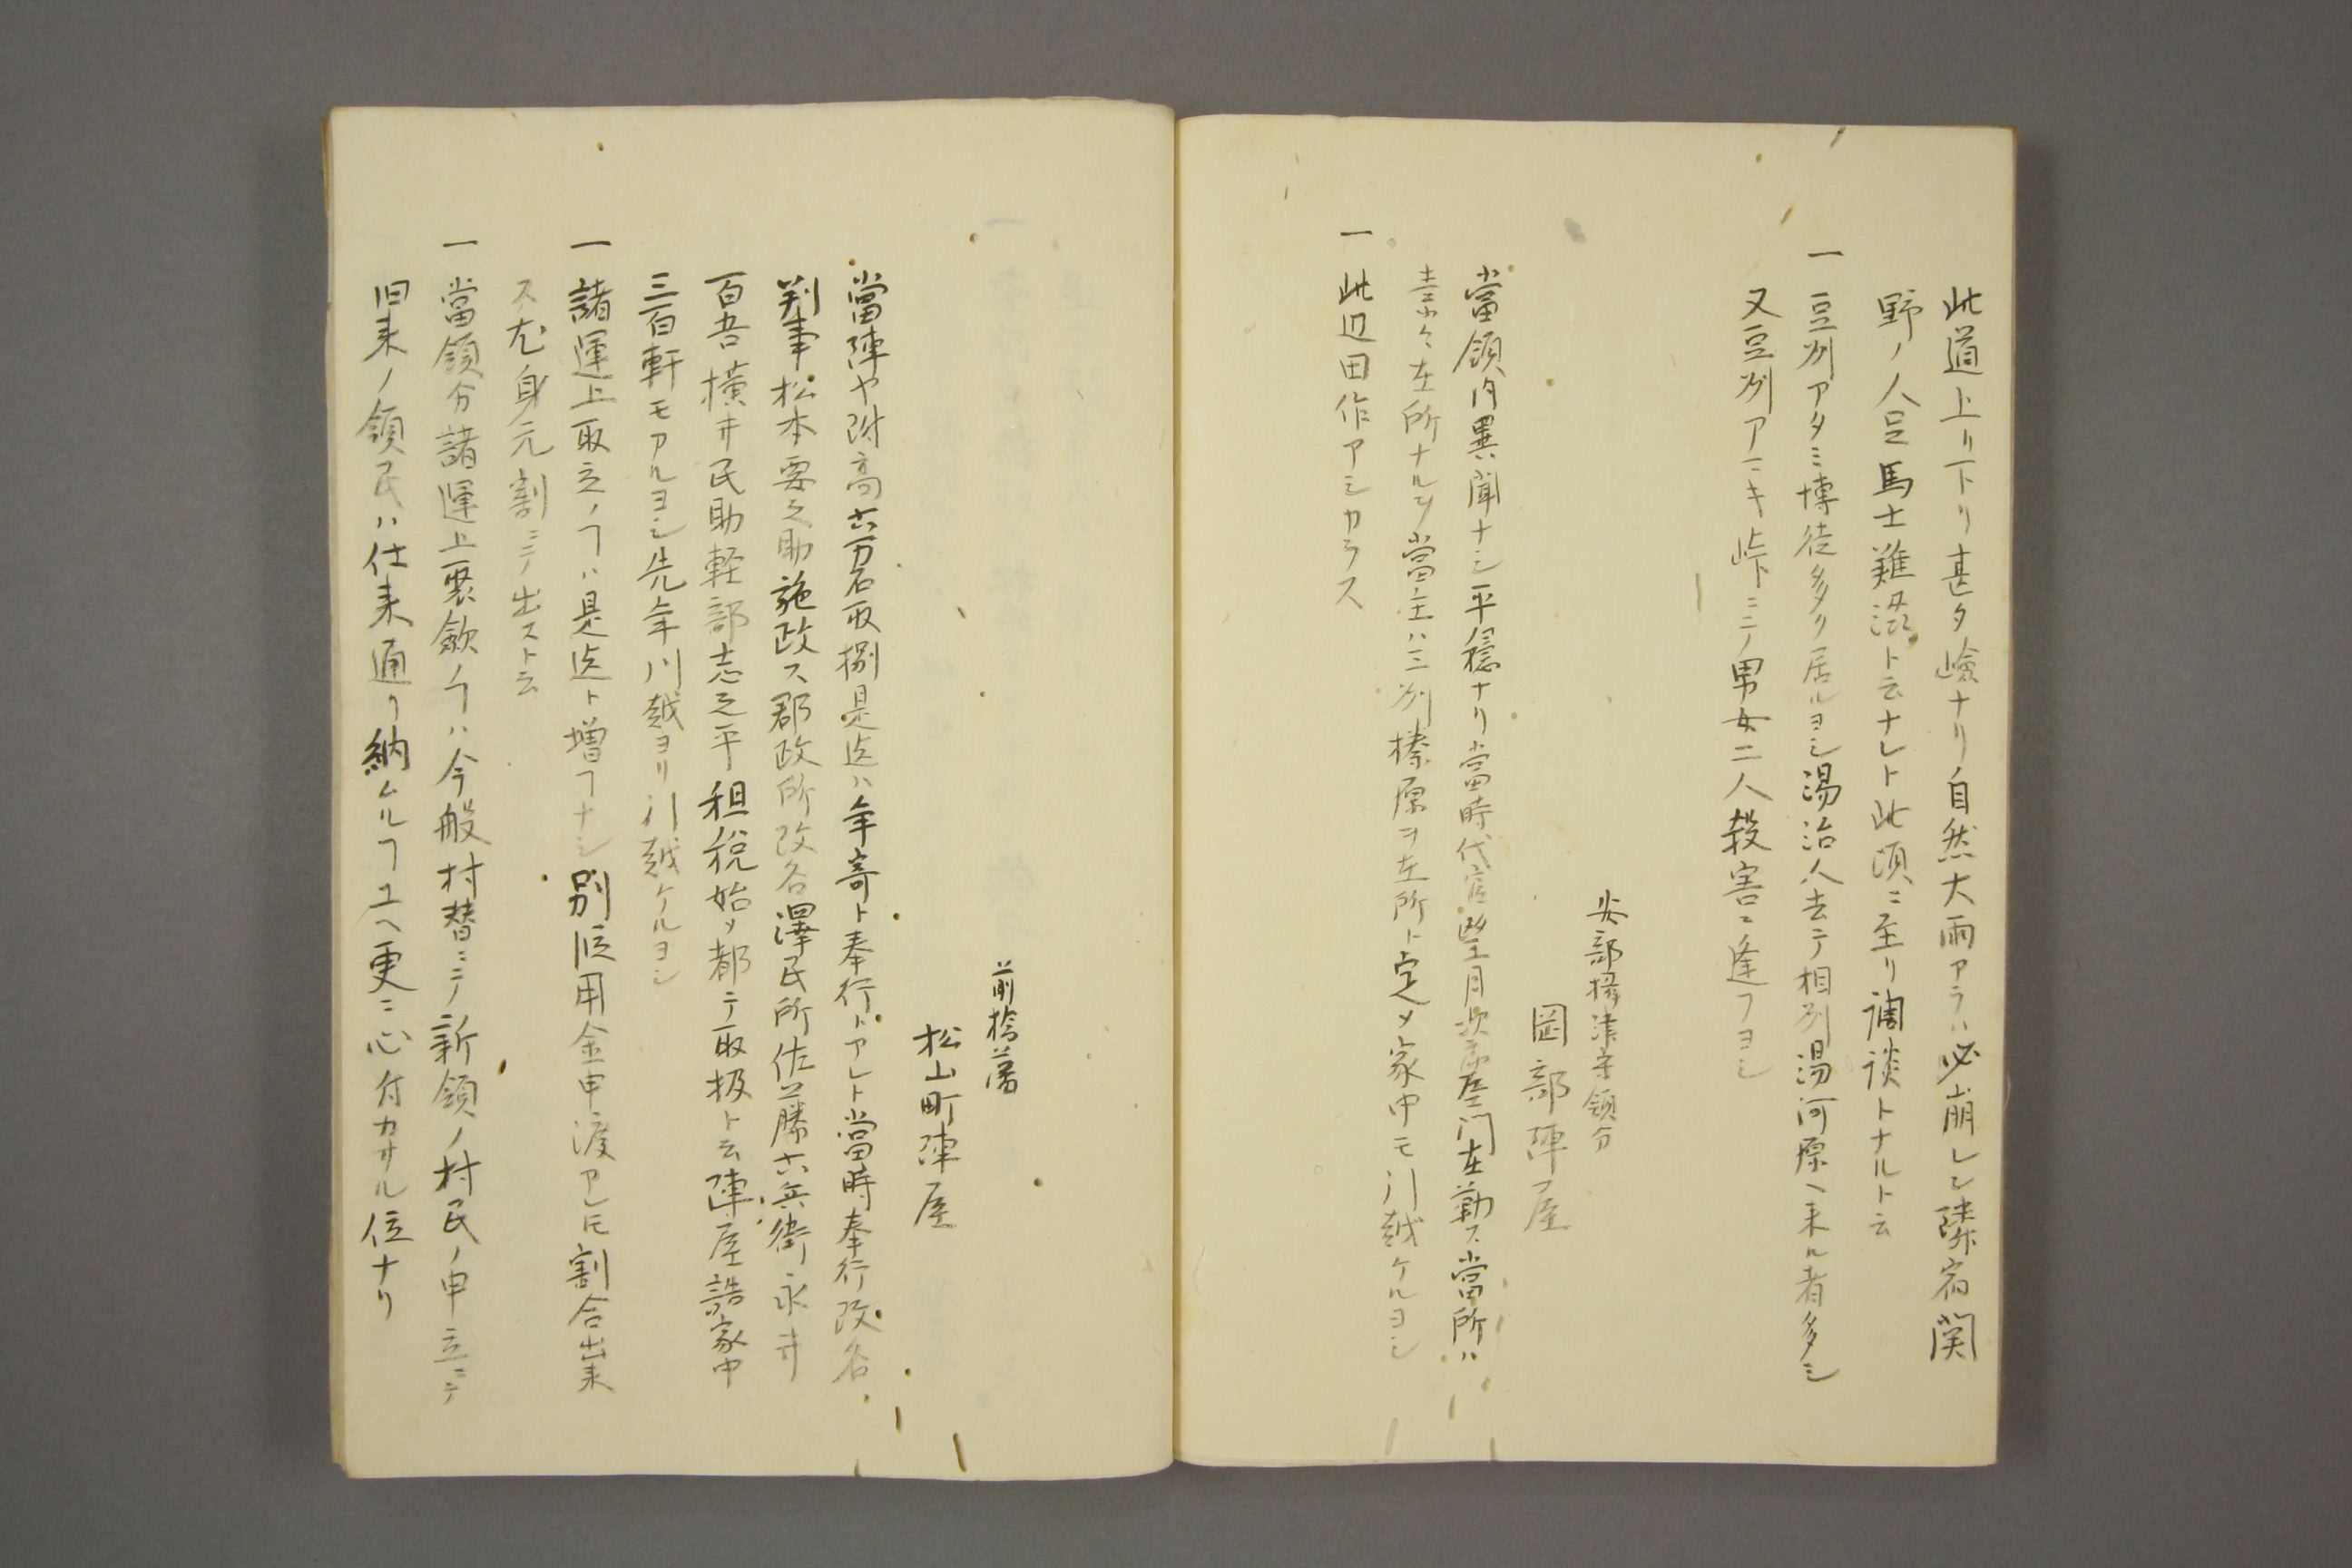 此道上リ下リ甚タ嶮ナリ自然大雨アラハ必崩レン隣宿関
野ノ人足馬士難澁ト云ナレト此頃ニ至リ調談トナルト云
一豆州アタミ博徒多ク居ルヨシ湯治人去テ相州湯河原ヘ来ル者多シ
又豆州アマキ峠ニテ男女二人殺害ニ逢フヨシ
安部摂津守領分
岡部陣屋
當領内異聞ナシ平穏ナリ當時代官望月次左衛門在勤ス當所ハ
素々在所ナルヲ當主ハ三州榛原ヲ在所ト定メ家中モ引越ケルヨシ
一此辺田作アシカラス
前橋藩
松山町陣屋
當陣ヤ附高六万石取捌是迄ハ年寄ト奉行トアレト當時奉行改名
判事松本要之助施政ス郡政所改名澤民所佐藤六兵衛永井
百吾横井民助軽部志之平租税始メ都テ取扱ト云陣屋詰家中
三百軒モアルヨシ先年川越ヨリ引越ケルヨシ
一諸運上取立ノヿハ是迄ト増ヿナシ別段用金申渡アレ𪜈割合出来
ス尤身元割ニテ出スト云
一當領分諸運上聚歛ノヿハ今般村替ニテ新領ノ村民ノ申立ニテ
旧来ノ領民ハ仕来通リ納ケルヿユヘ更ニ心付カサル位ナリ